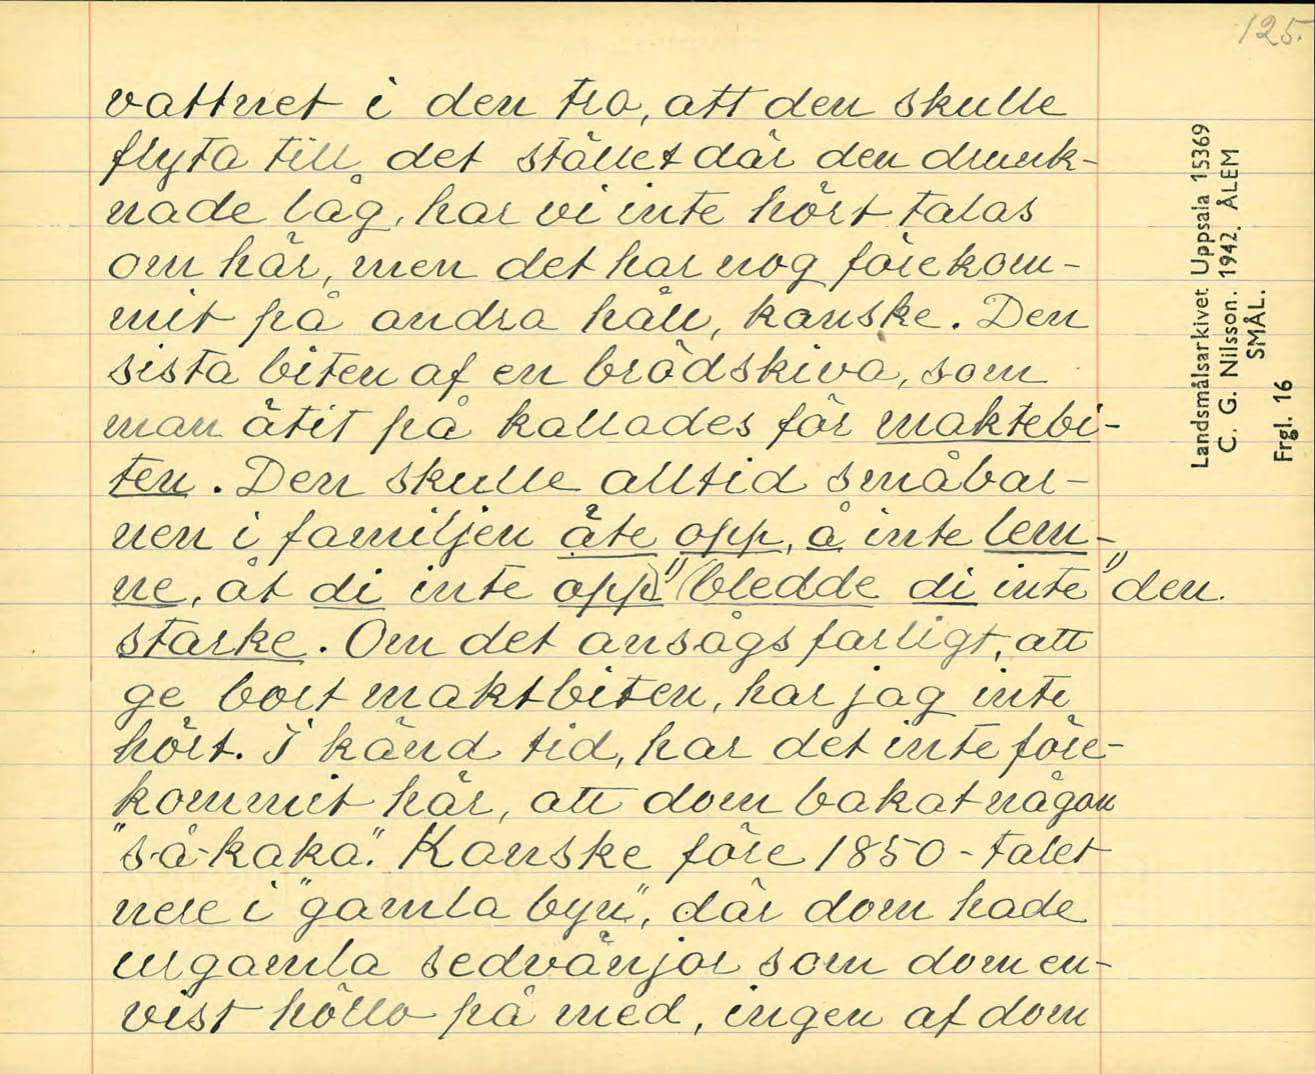 125.
vattnet i den tro, att den skulle
flyta till det stället där den drunk-
nade låg, har vi inte hört talas
om här, men det har nog förekom-
mit på andra håll, kanske. Den
sista biten af en brödskiva, som
man ätit på kallades för maktebi-
ten. Den skulle alltid småbar-
nen i familjen äte opp, å inte lem-
ne, åt di inte opp" (bledde di inte" den
starke. Om det ansågs farligt, att
ge bort maktbiten, har jag inte
hört. I känd tid, har det inte före-
kommit här, att dom bakat någon
"så-kaka". Kanske före 1850-talet
nere i "gamla byn", där dom hade
urgamla sedvänjor som dom en-
vist höllo på med, ingen af dom
Landsmålsarkivet Uppsala 15369
C. G. Nilsson. 1942. ÅLEM
SMÅL.
Frgl. 16